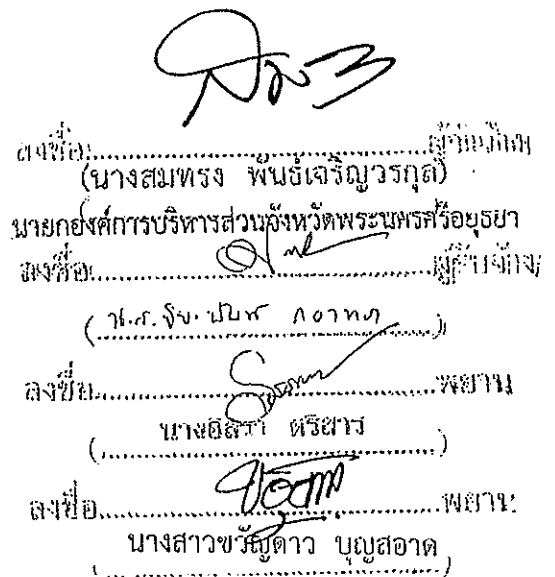 ลงชื่อ..............................ผู้ว่าจ้าง
(นางสมทรง พันธ์เจริญวรกุล)
นายกองค์การบริหารส่วนจังหวัดพระนครศรีอยุธยา
ลงชื่อ..............................ผู้รับจ้าง
(น.ส.)
ลงชื่อ..............................พยาน
(นางอิสรา ตรีสาร)
ลงชื่อ..............................พยาน
นางสาวขวัญดาว บุญสอาด